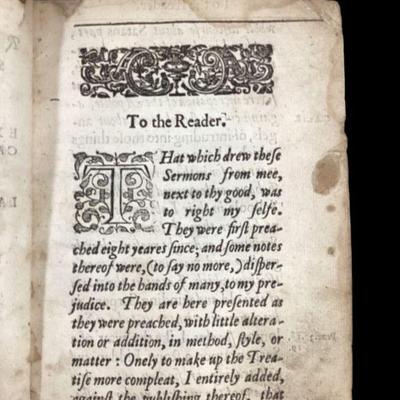 To the Reader.
THat which drew theſe
Sermons from mee,
next to thy good, was
to right my ſelfe.
They were firſt prea-
ched eight yeares ſince; and ſome notes
thereof were, (to ſay no more,) diſper-
ſed into the hands of many, to my pre-
judice. They are here preſented as
they were preached, with little altera-
tion or addition, in method, ſtyle, or
matter: Onely to make up the Trea-
tiſe more compleat, I entirely added,
againſt the publiſhing thereof, that